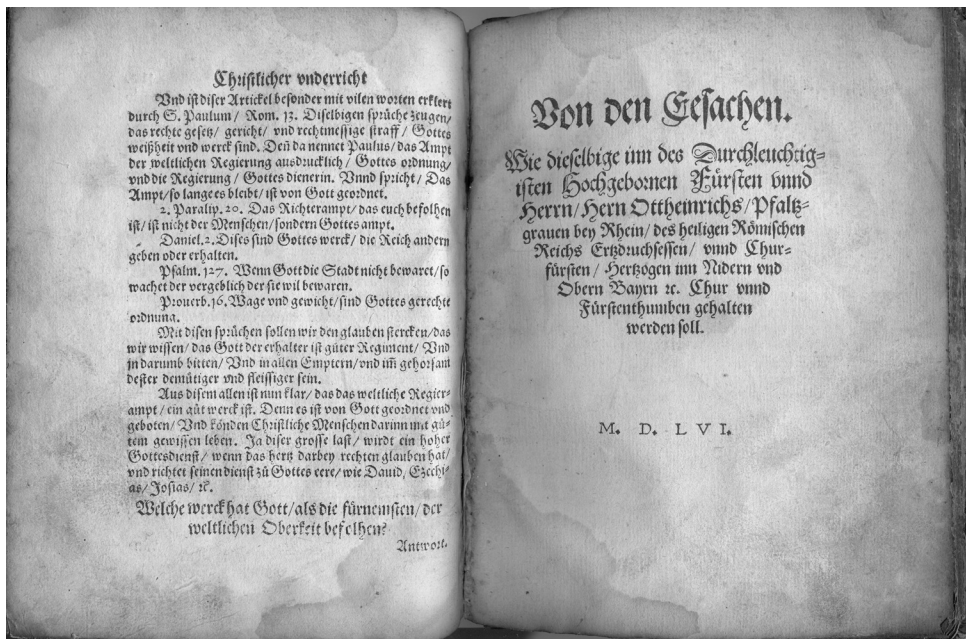 Christlicher vnderricht
Vnd ist diser Artickel besonder mit vilen worten erklert
durch S. Paulum / Rom. 13. Diselbigen sprüche zeugen/
das rechte gesetz/ gericht/ vnd rechtmessige straff/ Gottes
weißheit vnd werck sind. Deñ da nennet Paulus/ das Ampt
der weltlichen Regierung ausdrucklich/ Gottes ordnung/
vnd die Regierung / Gottes dienerin. Vnnd spricht/ Das
Ampt/ so lang es bleibt/ ist von Gott geordnet.
2. Paralip. 20. Das Richterampt/ das euch befolhen
ist/ ist nicht der Menschen/ sondern Gottes ampt.
Daniel. 2. Dises sind Gottes werck/ die Reich andern
geben oder erhalten.
Psalm. 127. Wenn Gott die Stadt nicht bewaret/ so
wachet der vergeblich der sie wil bewaren.
Prouerb. 16. Wage vnd gewicht/ sind Gottes gerechte
ordnung.
Mit disen sprüchen sollen wir den glauben stercken/ das
wir wissen/ das Gott der erhalter ist gůter Regiment/ Vnd
jn darumb bitten/ Vnd in allen Emptern/ vnd im gehorsam
dester demütiger vnd fleissiger sein.
Aus disem allen ist nun klar/ das das weltliche Regier-
ampt/ ein gůt werck ist. Denn es ist von Gott geordnet vnd
geboten/ Vnd könden Christliche Menschen darinn mit gů-
tem gewissen leben. Ja diser grosse last/ wirdt ein hoher
Gottesdienst/ wenn das hertz darbey rechten glauben hat/
vnd richtet seinen dienst zů Gottes eere/ wie Dauid, Ezechi-
as/ Josias/ ꝛc.
Welche werck hat Gott/ als die fürnemsten/ der
weltlichen Oberkeit befolhen?
Antwort.
Von den Eesachen.
Wie dieselbige inn des Durchleuchtig-
isten Hochgebornen Fürsten vnnd
Herrn/ Hern Ottheinrichs/ Pfaltz-
grauen bey Rhein/ des heiligen Römischen
Reichs Ertzdruchsessen/ vnnd Chur-
fürsten/ Hertzogen inn Nidern vnd
Obern Bayrn ꝛc. Chur vnnd
Fürstenthumben gehalten
werden soll.
M. D. LVI.